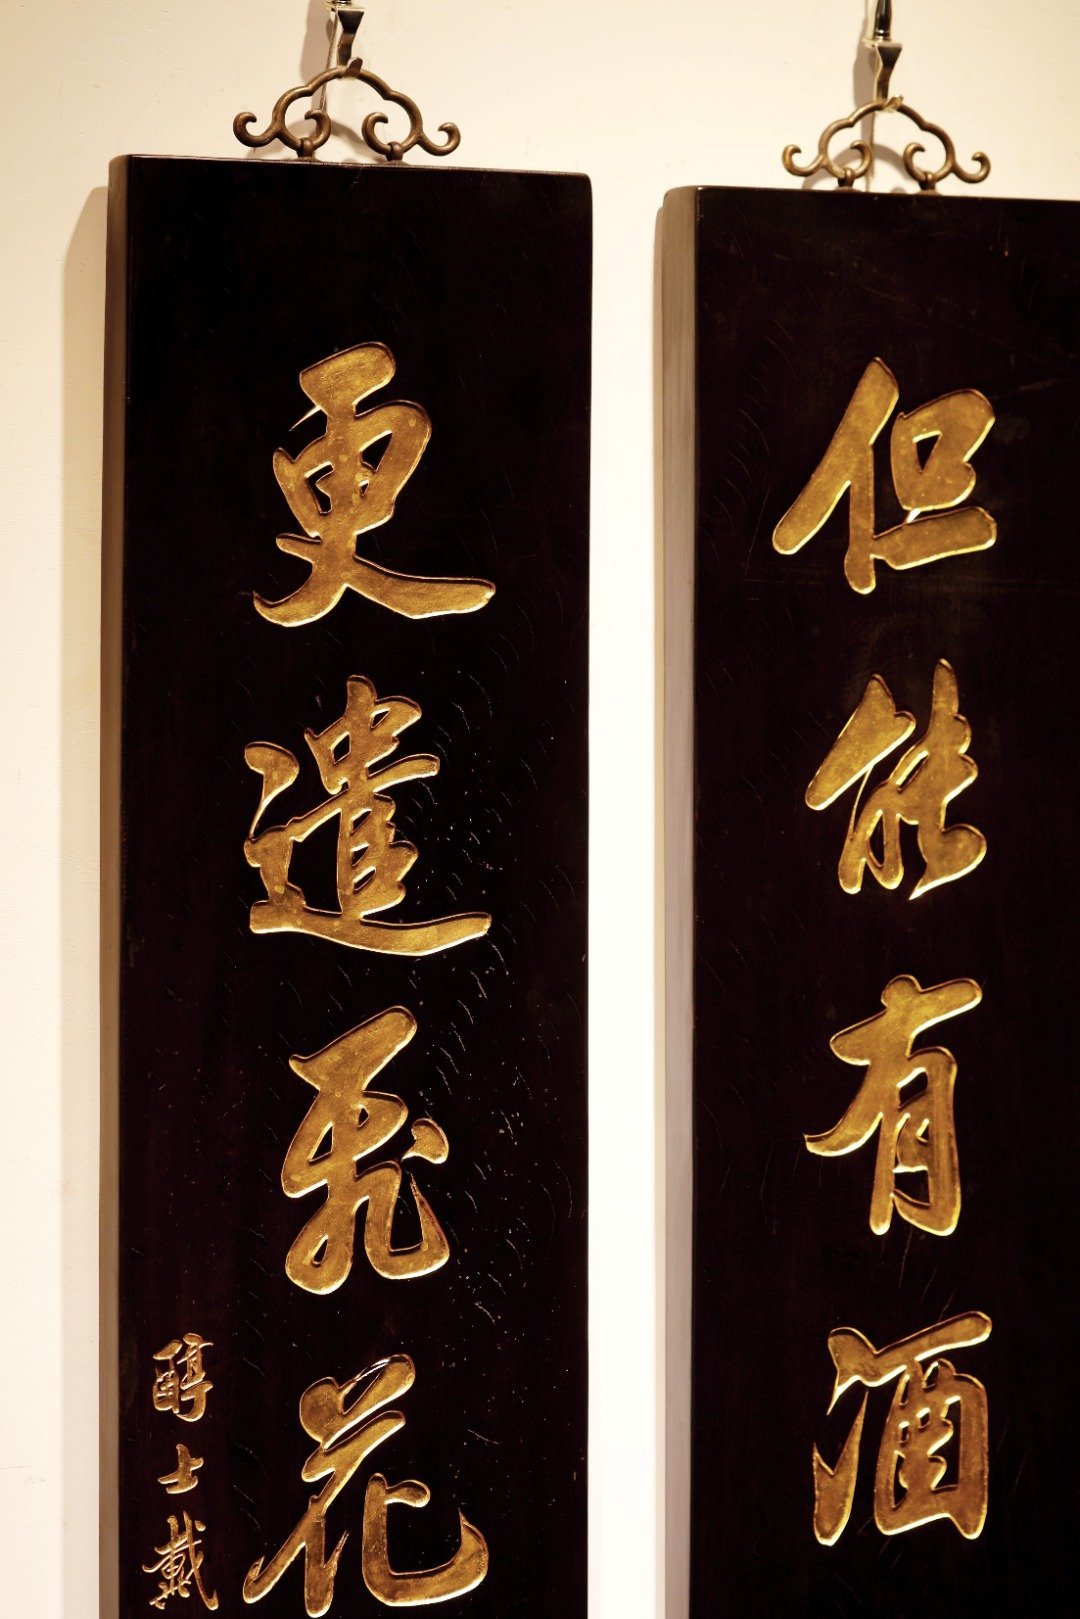 但能有酒
更遣飛花
醇士戴